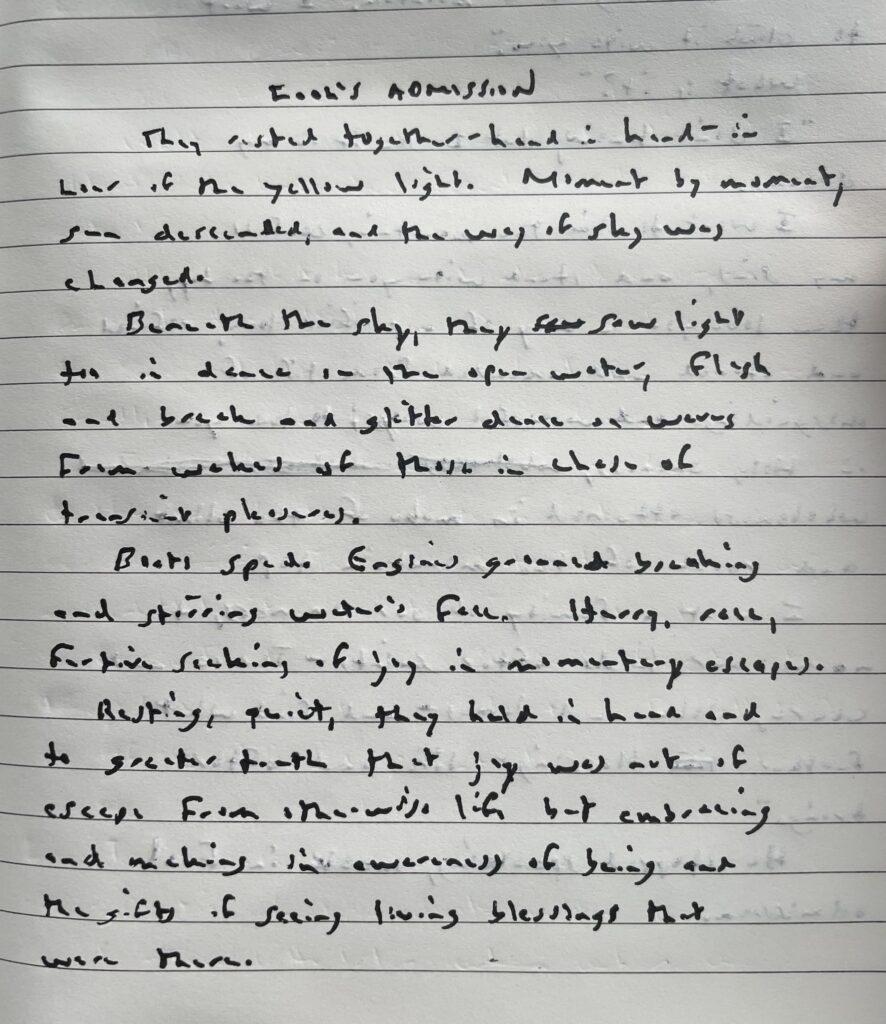 ADMISSION
They rested together - hand in hand - in
hour of the yellow light. Moment by moment,
sun descended, and the way of sky was
changed.
Beneath the sky, they saw light
too in dance on the open water, flash
and break and glitter dance on waves
from wakes of those in chase of
transient pleasures.
Boats sped. Engines groaned breaking
and stirring water's face. Hurry, race,
furtive seeking of joy in momentary escapes.
Resting, quiet, they held in hand and
to greater truth that joy was not of
escape from otherwise life but embracing
and in awareness of being and
the gifts of seeing living blessings that
were there.